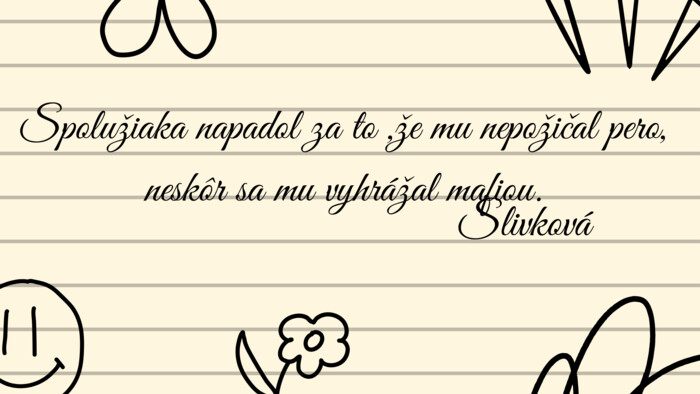 Spolužiaka napadol za to ,že mu nepožičal pero,
neskôr sa mu vyhrážal mafiou.
Slivková